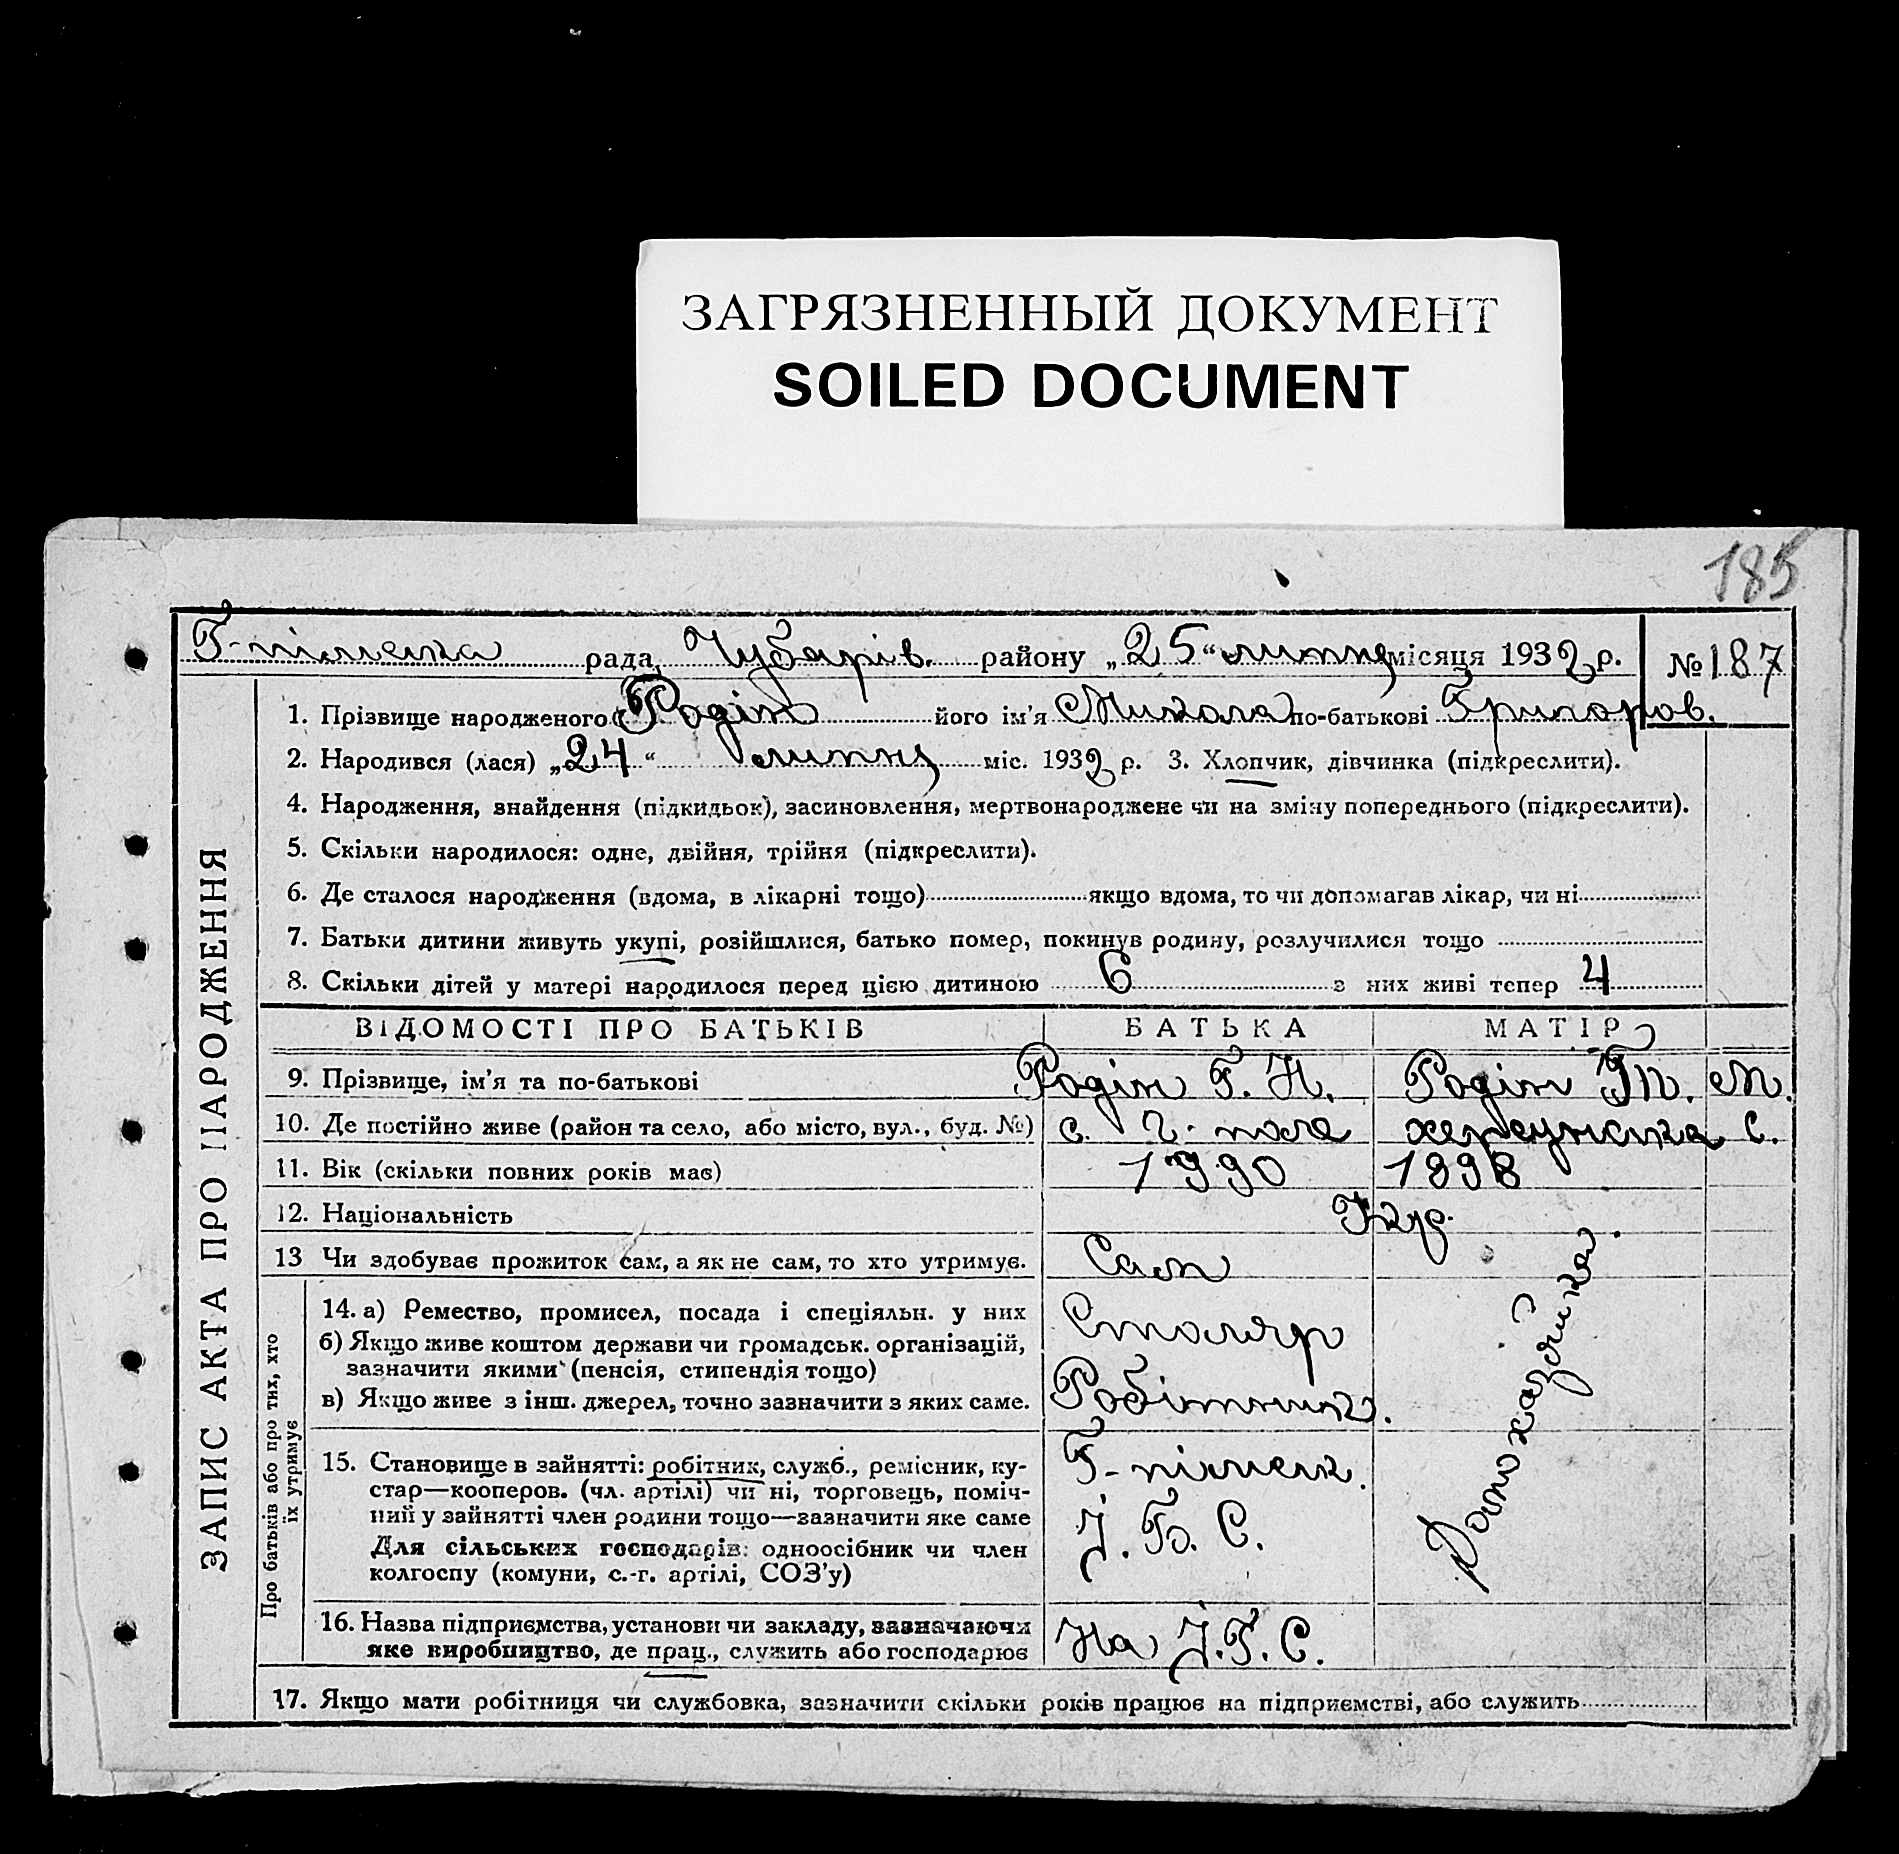 ЗАГРЯЗНЕННЫЙ ДОКУМЕНТ
SOILED DOCUMENT
185
Г-пільська рада, Чубарів. району „25“ липня місяця 1932 р. № 187
1. Прізвище народженого Родін його ім'я Микола по-батькові Григоров.
2. Народився (лася) „24“ липня міс. 1932 р. 3. Хлопчик, дівчинка (підкреслити).
4. Народження, знайдення (підкидьок), засиновлення, мертвонароджене чи на зміну попереднього (підкреслити).
5. Скільки народилося: одне, двійня, трійня (підкреслити).
6. Де сталося народження (вдома, в лікарні тощо) якщо вдома, то чи допомагав лікар, чи ні
7. Батьки дитини живуть укупі, розійшлися, батько помер, покинув родину, розлучилися тощо
8. Скільки дітей у матері народилося перед цією дитиною 6 з них живі тепер 4
ЗАПИС АКТА ПРО НАРОДЖЕННЯ
ВІДОМОСТІ ПРО БАТЬКІВ БАТЬКА МАТІР
9. Прізвище, ім'я та по-батькові Родін Г. Н. Родін М.
10. Де постійно живе (район та село, або місто, вул., буд. №) с. Г. поле херсунська с.
11. Вік (скільки повних років має) 1990 1898
12. Національність Укр.
13 Чи здобуває прожиток сам, а як не сам, то хто утримує. Сам
Про батьків або про тих, хто їх утримує
14. а) Ремество, промисел, посада і спеціяльн. у них Столяр
б) Якщо живе коштом держави чи громадськ. організацій,
зазначити якими (пенсія, стипендія тощо)
в) Якщо живе з інш. джерел, точно зазначити з яких саме. Робітник.
Домохазяйка
15. Становище в зайнятті: робітник, служб., ремісник, ку-
стар—кооперов. (чл. артілі) чи ні, торговець, поміч-
ний у зайнятті член родини тощо—зазначити яке саме
Для сільських господарів: одноосібник чи член
колгоспу (комуни, с.-г. артілі, СОЗ'у)
16. Назва підприємства, установи чи закладу, зазначаючи
яке виробництво, де прац., служить або господарює На
17. Якщо мати робітниця чи службовка, зазначити скільки років працює на підприємстві, або служить